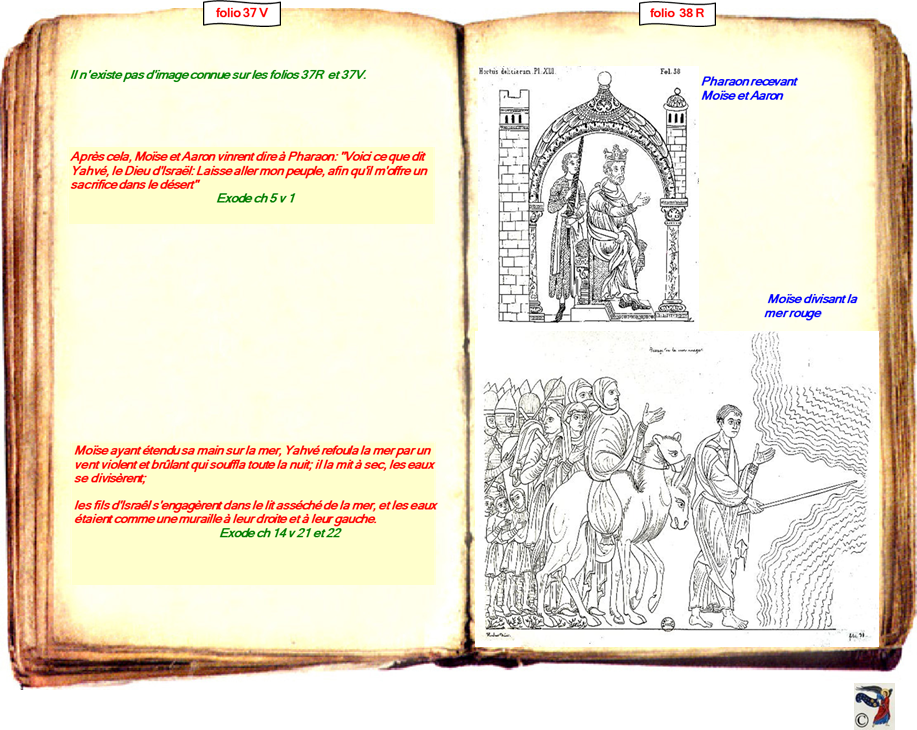 folio 37 V
folio 38 R
Il n'existe pas d'image connue sur les folios 37R et 37V.
Après cela, Moïse et Aaron vinrent dire à Pharaon: "Voici ce que dit
Yahvé, le Dieu d'Israël: Laisse aller mon peuple, afin qu'il m'offre un
sacrifice dans le désert"
Exode ch 5 v 1
Moïse ayant étendu sa main sur la mer, Yahvé refoula la mer par un
vent violent et brûlant qui souffla toute la nuit; il la mit à sec, les eaux
se divisèrent;
les fils d'Israêl s'engagèrent dans le lit asséché de la mer, et les eaux
étaient comme une muraille à leur droite et à leur gauche.
Exode ch 14 v 21 et 22
Hortus deliciarum Pl. XIII.
Fol. 38
Pharaon recevant
Moïse et Aaron
Moïse divisant la
mer rouge
©